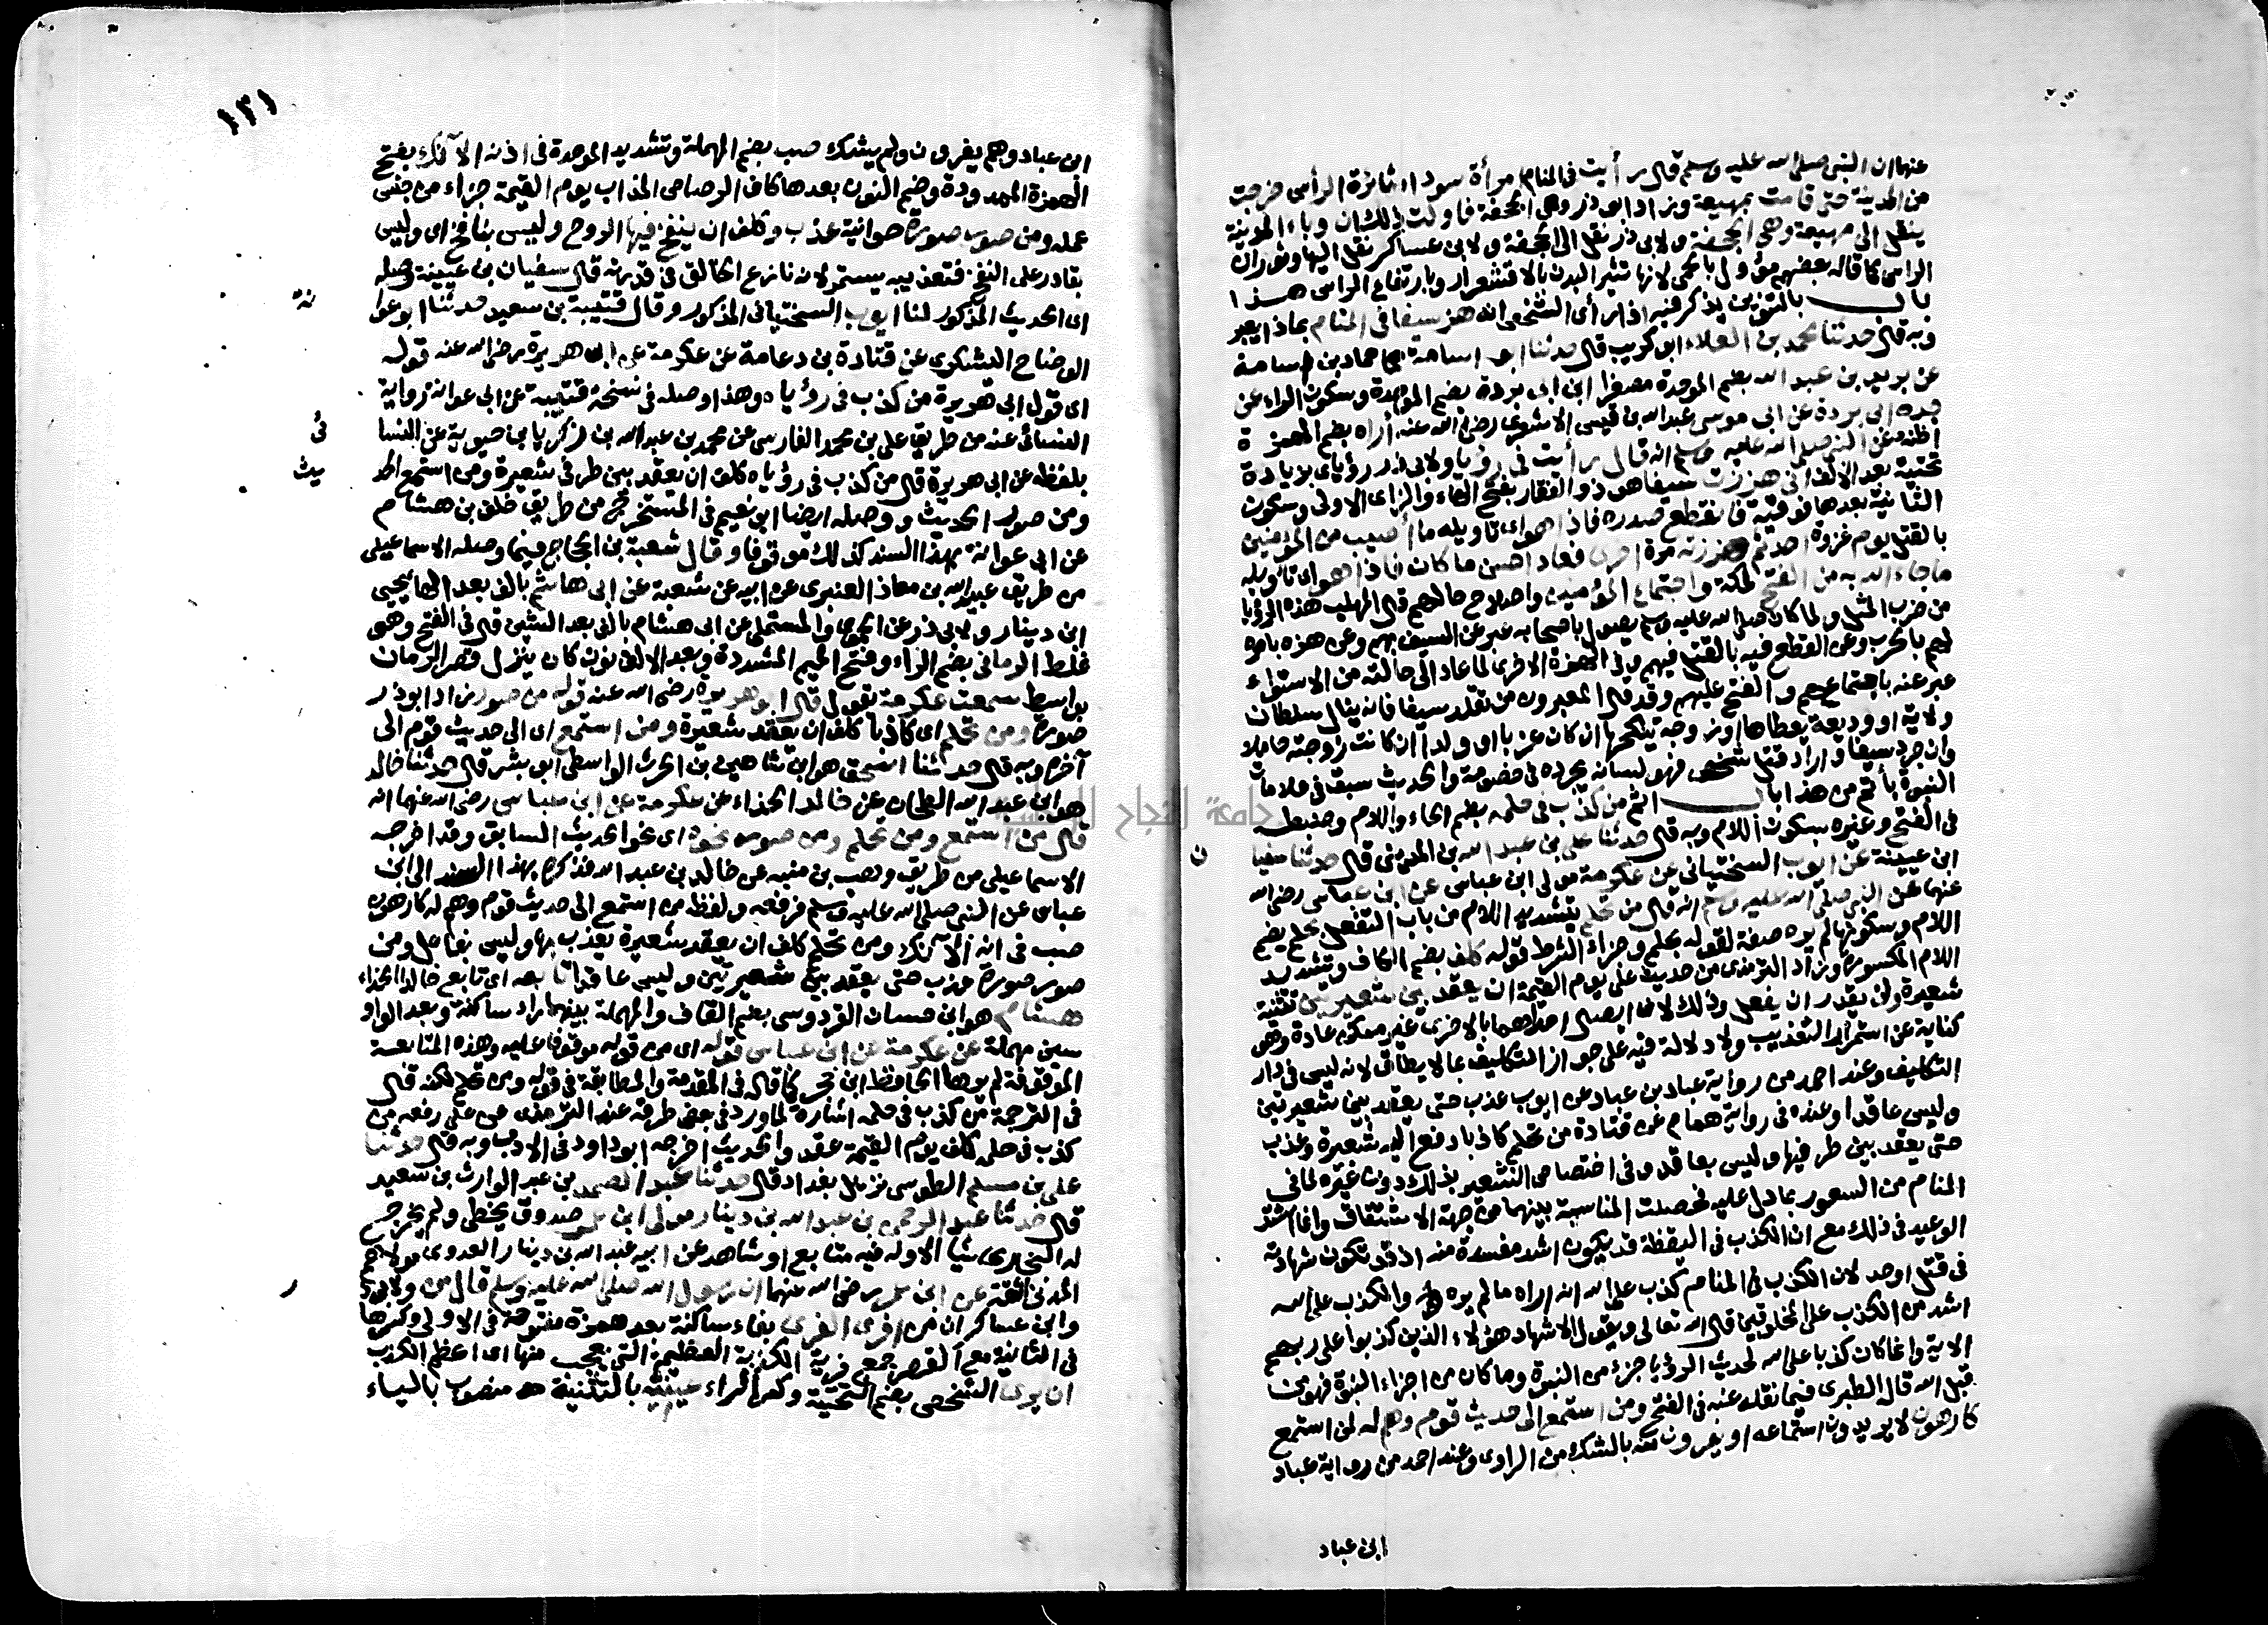 عنها ان النبي صلى الله عليه وسلم قال رأيت في المنام امرأة سوداء ثائرة الرأس خرجت
من المدينة حتى قامت بمهيعة وزاد ابو ذر وهي الجحفة فاولت ذلك ان وباء المدينة
ينقل الى مهيعة وهي الجحفة ولابي ذر نقل الى الجحفة ولابن عساكر نقل اليها وثوران
الراس كما قاله بعضهم مؤول بالحمى لانها تثير البدن بالاقشعرار وبارتفاع الراس هذا
باب بالتنوين يذكر فيه اذا رأى الشخص انه هز سيفا في المنام بماذا يعبر
وبه قال حدثنا محمد بن العلاء ابو كريب قال حدثنا ابو اسامة حماد بن اسامة
عن بريد بن عبد الله بضم الموحدة مصغرا ابن ابي بردة بضم الموحدة وسكون الراء عن
جده ابي بردة عن ابي موسى عبد الله بن قيس الاشعري رضي الله عنه أراه بضم الهمزة
اظنه عن النبي صلى الله عليه وسلم انه قال رأيت في رؤيا ولابي ذر رؤياي بزيادة
تحتية بعد الالف اني هززت سيفا هو ذو الفقار بفتح الهاء والزاي الاولى وسكون
الثانية بعدها فوقية فانقطع صدره فاذا هو اي تاويله ما أصيب من المؤمنين
بالقتل يوم غزوة احد ثم هززته مرة اخرى فعاد احسن ما كان فاذا هو اي تأويله
ما جاء الله به من الفتح لمكة واجتماع المؤمنين واصلاح حالهم قال المهلب هذه الرؤيا
من ضرب المثل ولما كان صلى الله عليه وسلم يصول باصحابه عبر عن السيف بهم وعن هزه بامره
لهم بالحرب وعن القطع فيه بالقتل فيهم وفي الهزة الاخرى لما عاد الى حالته من الاستواء
عبر عنه باجتماعهم والفتح عليهم وقد قال المعبرون من تقلد سيفا فانه ينال سلطان
ولاية او وديعة يعطاها او زوجة ينكحها ان كان عزبا او ولدا ان كانت زوجته حاملا
وان جرد سيفا واراد قتل شخص فهو لسانه يجرده في خصومة والحديث سبق في علامات
النبوة بأتم من هذا باب اثم من كذب في حلمه بضم الحاء واللام وضبطه
في الفتح وغيره بسكون اللام وبه قال حدثنا علي بن عبد الله بن المديني قال حدثنا سفيا ن
ابن عيينة عن ايوب السختياني عن عكرمة مولى ابن عباس عن ابن عباس رضي الله
عنهما عن النبي صلى الله عليه وسلم انه قال من تحلم بتشديد اللام من باب التفعل بحلم بضم
اللام وسكونها لم يره صفة لقوله بحلم وجزاء الشرط قوله كلف بضم الكاف وتشديد
اللام المكسورة وزاد الترمذي من حديث علي يوم القيمة ان يعقد بين شعيرتين تثنية
شعيرة ولن يقدر ان يفعل وذلك لان ايصال احداهما بالاخرى غير ممكن عادة وهو
كناية عن استمرار التعذيب ولا دلالة فيه على جواز التكليف بما لا يطاق لانه ليس في دار
التكليف وعند احمد من رواية عباد بن عباد عن ايوب عذب حتى يعقد بين شعيرتين
وليس عاقدا وعنده في رواية همام عن قتادة من تحلم كاذبا دفع اليه شعيرة وعذب
حتى يعقد بين طرفيها وليس بعاقد وفي اختصاص الشعير بذلك دون غيره لما في
المنام من الشعور بما دل عليه فحصلت المناسبة بينهما من جهة الاشتقاق وانما اشتد
الوعيد في ذلك مع ان الكذب في اليقظة قد يكون اشد مفسدة منه اذ قد تكون شهادته
في قتل او حد لان الكذب في المنام كذب على الله انه اراه ما لم يره والكذب على الله
اشد من الكذب على المخلوقين قال الله تعالى ويقول الاشهاد هؤلاء الذين كذبوا على ربهم
الاية وانما كان كذبا على الله لحديث الرؤيا جزء من النبوة وما كان من اجزاء النبوة فهو من
قبل الله قال الطبري فيما نقله عنه في الفتح ومن استمع الى حديث قوم وهم له لمن استمع
كارهون لا يريدون استماعه او يفرون منه بالشك من الراوي وعند احمد من رواية عباد
ابن عباد
١٣١
ابن عباد وهم يفرون ولم يشك صب بضم المهملة وتشديد الموحدة في اذنه الآنك بفتح
الهمزة الممدودة وضم النون بعدها كاف الرصاص المذاب يوم القيمة جزاء من جنس
عمله ومن صور صورة حيوانية عذب وكلف ان ينفخ فيها الروح وليس بنافخ اي وليس
بقادر على النفخ فتعذيبه يستمر لانه نازع الخالق في قدرته قال سفيان بن عيينة وصله
اي الحديث المذكور لنا ايوب السختياني المذكور وقال قتيبة بن سعيد حدثنا ابو عوا نة
الوضاح اليشكري عن قتادة بن دعامة عن عكرمة عن ابي هريرة رضي الله عنه قوله
اي قول ابي هريرة من كذب في رؤياه وهذا وصله في نسخة قتيبة عن ابي عوانة رواية
النسائي عنه من طريق علي بن محمد الفارسي عن محمد بن عبد الله بن زكريا بن حيوية عن النسا ئي
بلفظه عن ابي هريرة قال من كذب في رؤياه كلف ان يعقد بين طرفي شعيرة ومن استمع الحد يث
ومن صور الحديث ووصله ايضا ابو نعيم في المستخرج من طريق خلف بن هشام
عن ابي عوانة بهذا السند كذلك موقوفا وقال شعبة بن الحجاج فيما وصله الاسماعيلي
من طريق عبيد الله بن معاذ العنبري عن ابيه عن شعبة عن ابي هاشم بالف بعد الهاء يحيى
ابن دينار ولابي ذر عن الحموي والمستملي عن ابي هشام بالف بعد الشين قال في الفتح وهو
غلط الرماني بضم الراء وفتح الميم المشددة وبعد الالف نون كان ينزل قصر الرمان
بواسط سمعت عكرمة يقول قال ابو هريرة رضي الله عنه قوله من صور زاد ابو ذر
صورة ومن تحلم اي كاذبا كلف ان يعقد شعيرة ومن استمع اي الى حديث قوم الى
آخره وبه قال حدثنا اسحق هو ابن شاهين بن الحرث الواسطي ابو بشر قال حدثنا خالد
هو ابن عبد الله الطحان عن خالد الحذاء عن عكرمة عن ابن عباس رضي الله عنهما انه
قال من استمع ومن تحلم ومن صور نحوه اي نحو الحديث السابق وقد اخرجه
الاسماعيلي من طريق وهب بن منبه عن خالد بن عبد الله فذكره بهذا السند الى ابن
عباس عن النبي صلى الله عليه وسلم فرفعه ولفظه من استمع الى حديث قوم وهم له كارهون
صب في اذنه الآنك ومن تحلم كلف ان يعقد شعيرة يعذب بها وليس بفاعل ومن
صور صورة عذب حتى يعقد بين شعيرتين وليس عاقدا تابعه اي تابع خالدا الحذاء
هشام هو ابن حسان القردوسي بضم القاف والمهملة بينهما راء ساكنة وبعد الواو
سين مهملة عن عكرمة عن ابن عباس قوله اي من قوله موقوفا عليه وهذه المتابعة
الموقوفة لم يرها الحافظ ابن حجر كما قاله في المقدمة والمطابقة في قوله ومن تحلم لكنه قال
في الترجمة من كذب في حلمه اشارة لما ورد في بعض طرقه عند الترمذي عن علي رفعه من
كذب في حلمه كلف يوم القيمة عقد والحديث اخرجه ابو داود في الادب وبه قال حدثنا
علي بن مسلم الطوسي نزيل بغداد قال حدثنا عبد الصمد بن عبد الوارث بن سعيد
قال حدثنا عبد الرحمن بن عبد الله بن دينار مولى ابن عمر صدوق يخطي ولم يخرج
له البخاري شيا الا وله فيه متابع او شاهد عن ابيه عبد الله بن دينار العدوي مولاهم
المدني الثقة عن ابن عمر رضي الله عنهما ان رسول الله صلى الله عليه وسلم قال من ولابي ذر
وابن عساكر ان من افرى الفرى بفاء ساكنة بعد همزة مفتوحة في الاولى وكسرها
في الثانية مع القصر جمع فرية الكذبة العظيمة التي يعجب منها اي اعظم الكذب
ان يري الشخص بضم التحتية وكسر الراء عينيه بالتثنية منصوب بالياء
جامعة النجاح